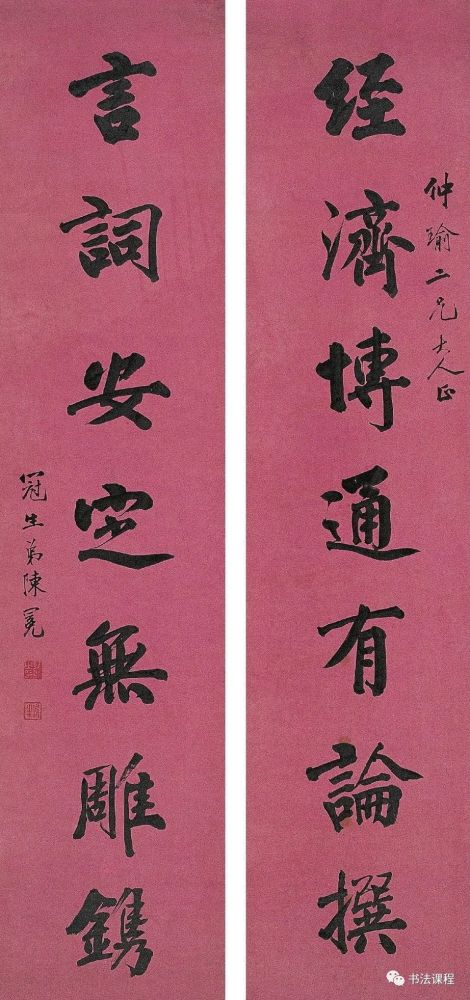 仲瑜二兄大人正
経濟博通有論撰
言詞安定無雕鐫
冠生弟陳冕
书法课程